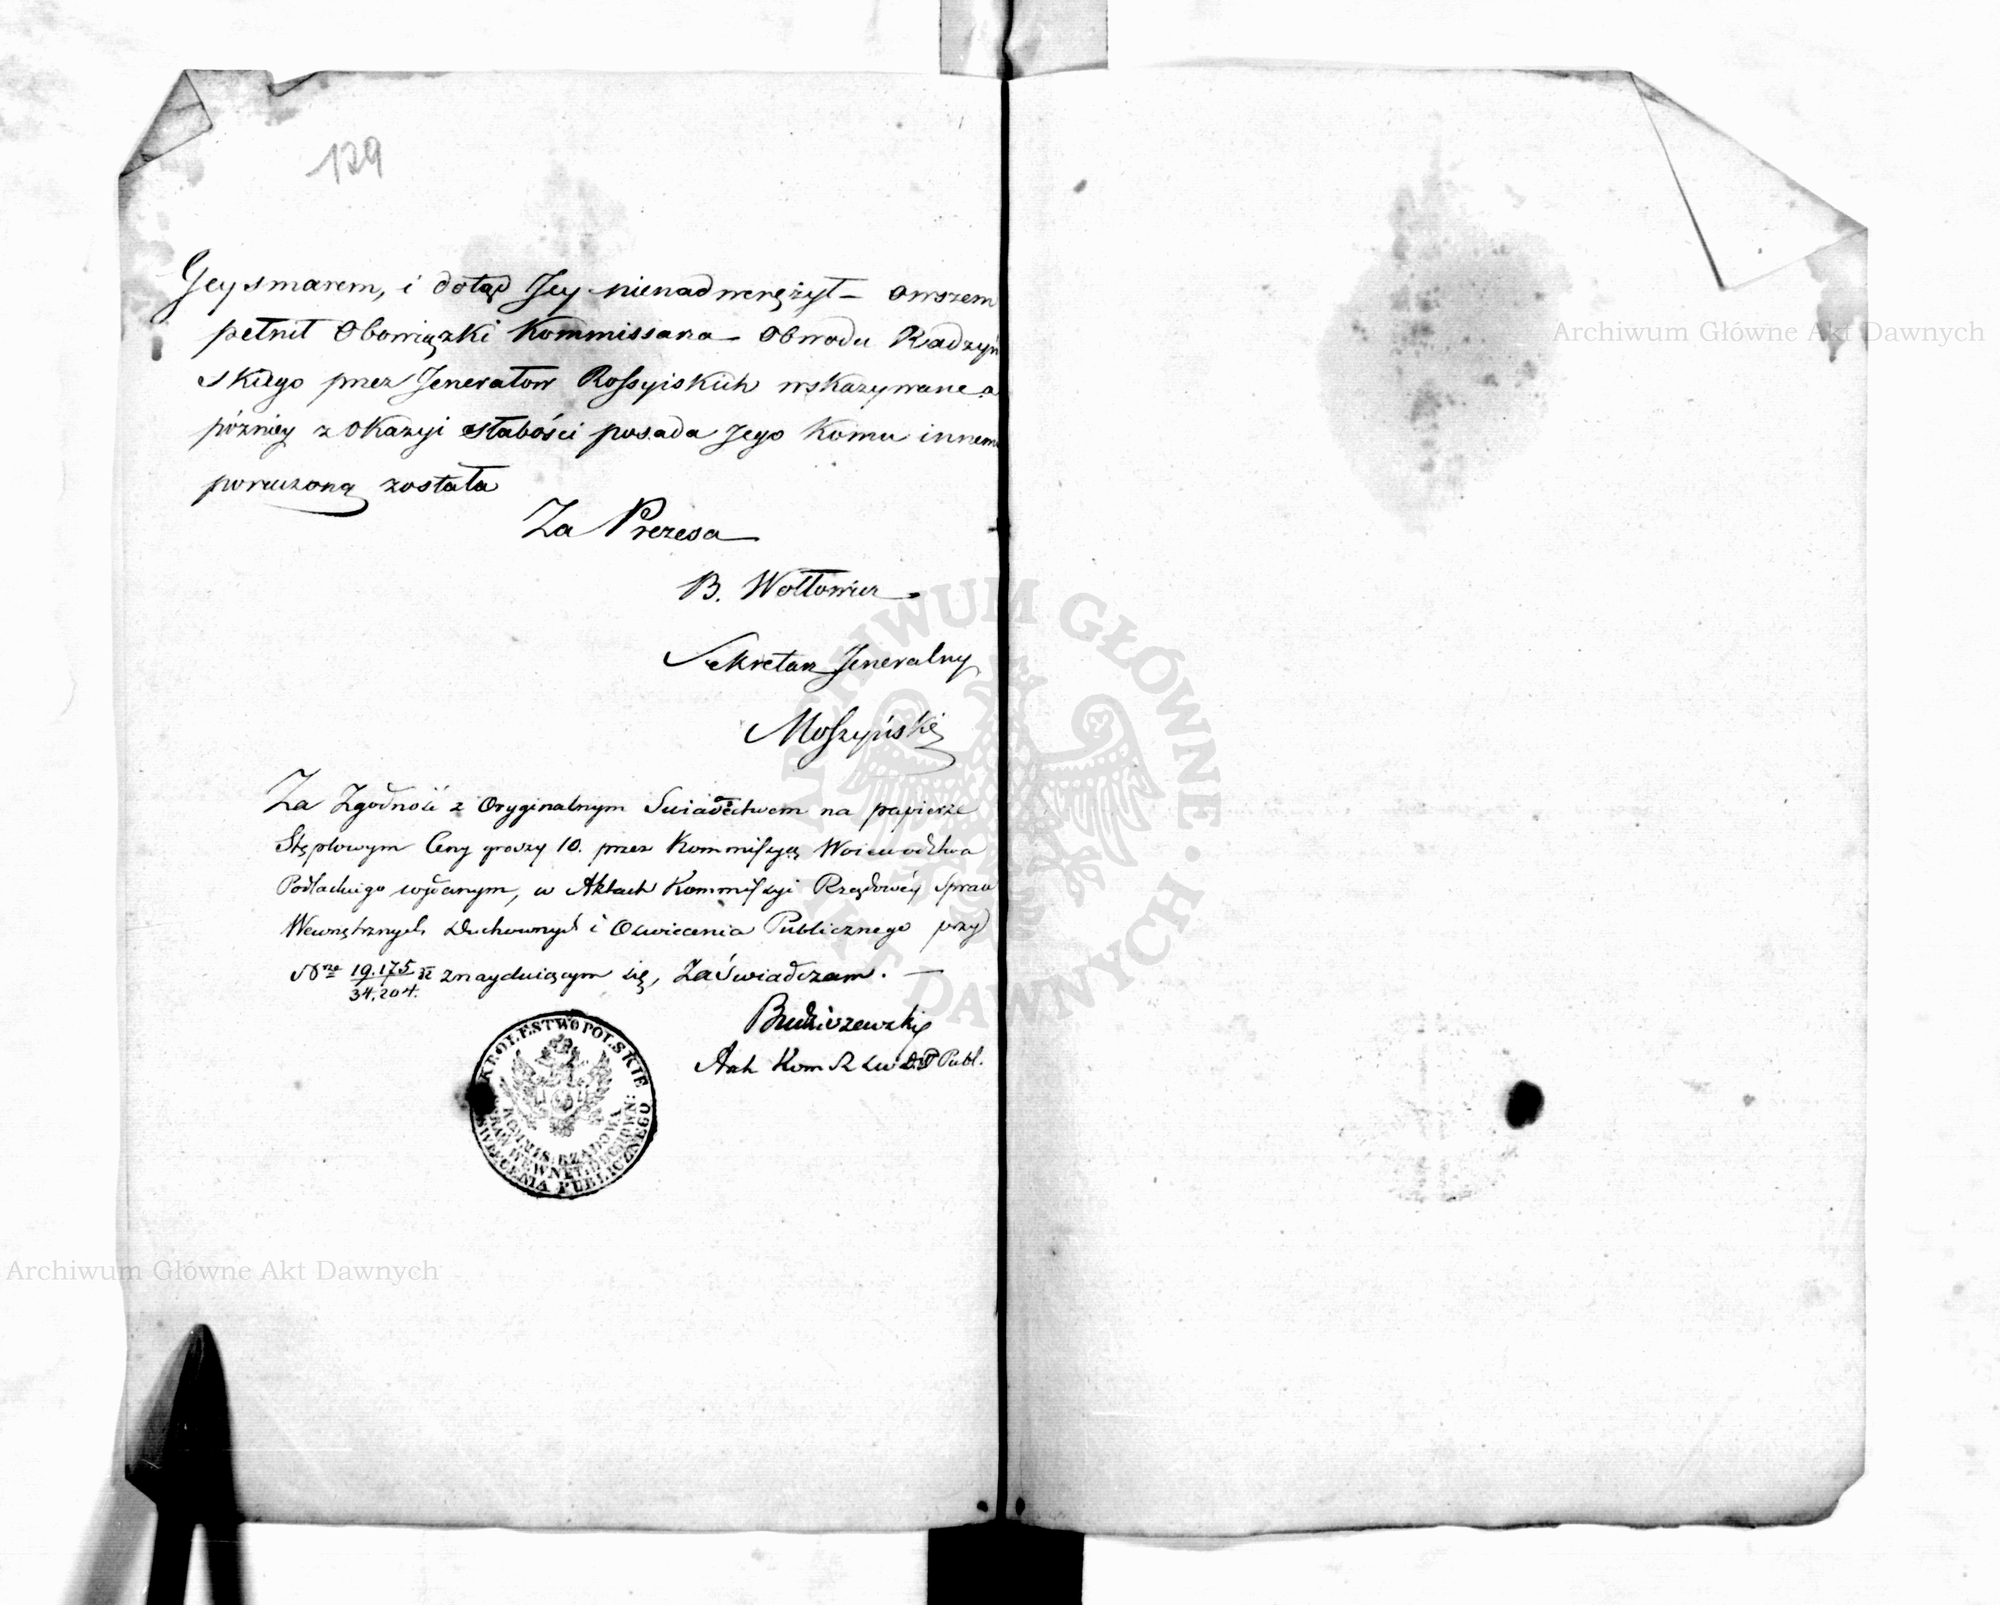 129
Geysmarem, i dotąd Jey nienadweręzył – owszem
pełnił Obowiązki Kommissarza Obwodu Radzyń
skiego przez Jenerałow Rossyiskich wskazywane a
pózniey z okazyi słabości posada Jego komu innemu
poruczoną została
Za Prezesa
B. Wołłowicz
Sekretarz Jeneralny
Moszyński
Za Zgodność z Oryginalnym Swiadectwem na papierze
Stęplowym Ceny groszy 10. przez Kommissyą Woiewodztwa
Podlaskiego wydanym, w Aktach Kommissyi Rządowéy Spraw
Wewnętrznych Duchownych i Oswiecenia Publicznego przy
Nrze 19.175/34.204. znayduiącym się, Zaświadczam. —
Budziszewski
Arch Kom R Publ.
KRÓLESTWO POLSKIE
KOMMIS. RZĄDOWA
SPRAW WEWNĘT: DUCHOWN:
OSWIECENIA PUBLICZNEGO
Archiwum Główne Akt Dawnych
Archiwum Główne Akt Dawnych
ARCHIWUM GŁÓWNE AKT DAWNYCH